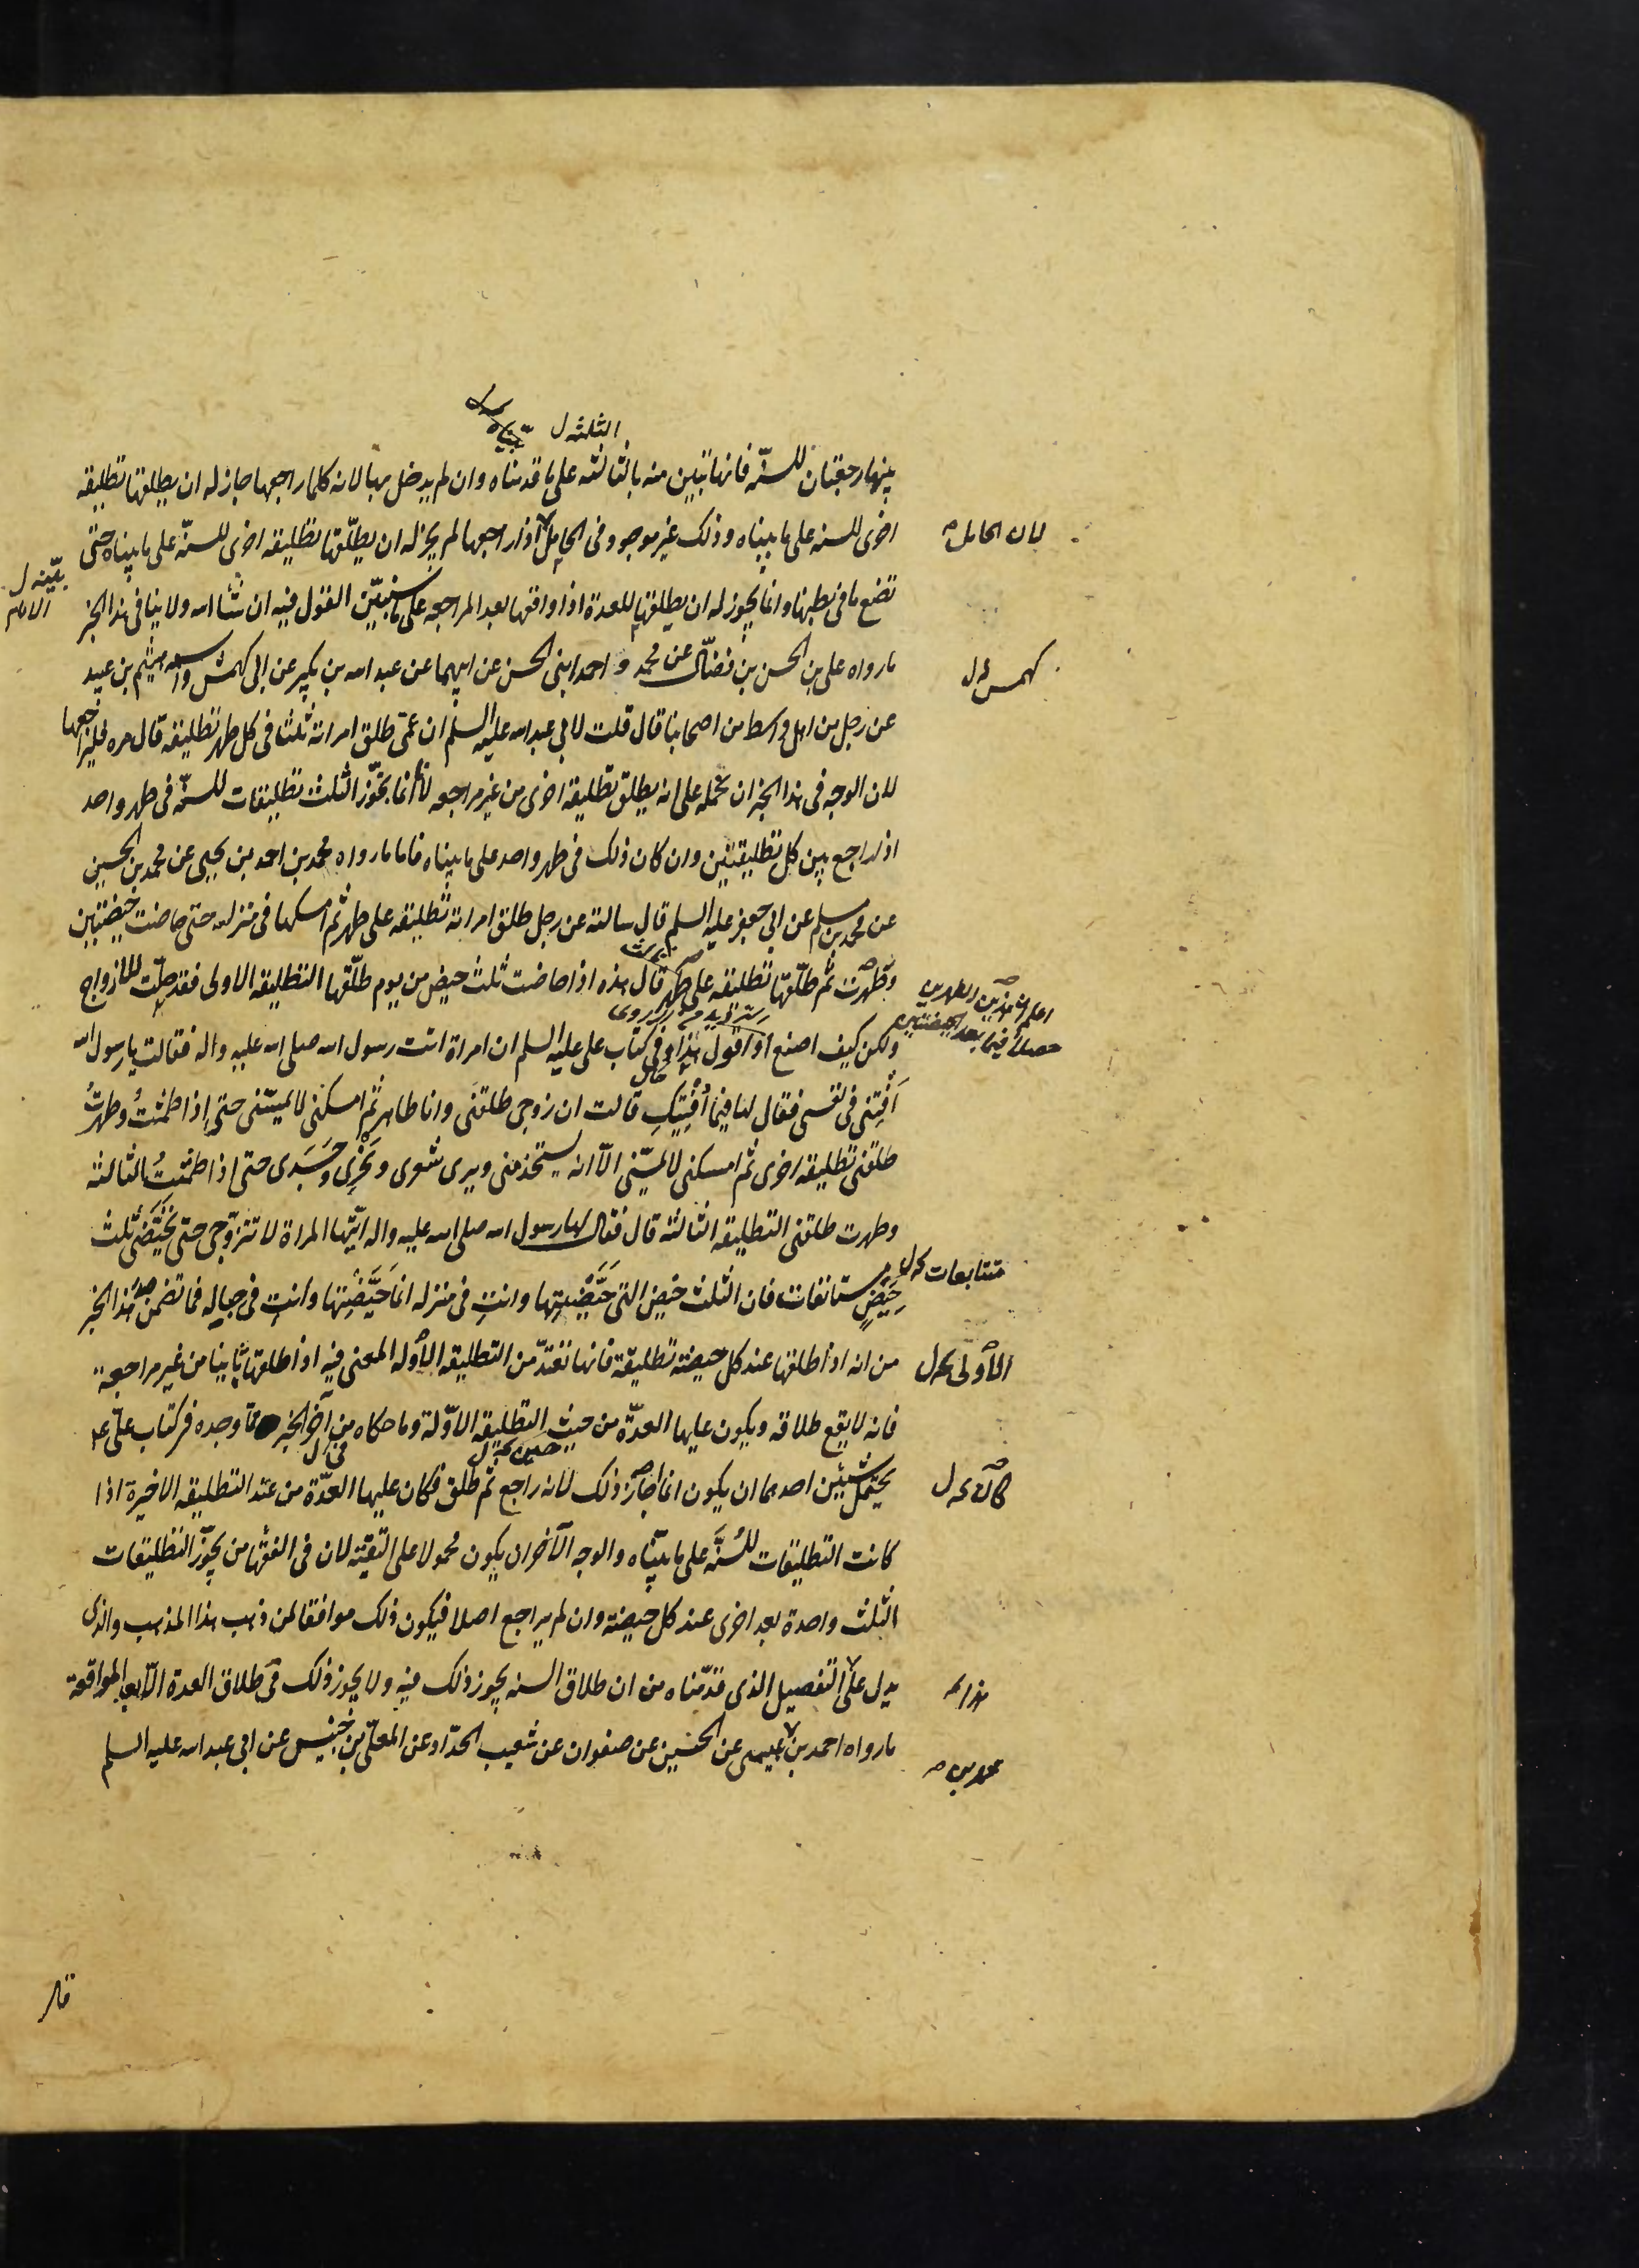 الثلثه ل
بينهما رجعتان للسنّة فانها تبين منه بالثالثه على ما قدمناه وان لم يدخل بها لانه كلما راجعها جاز له ان يطلقها تطليقه
اخرى للسنه على ما بيناه وذلك غير موجود فى الحامل اذا راجعها لم يجز له ان يطلّقها تطليقه اخرى للسنّة على ما بيناه حتى
لان الحامل
تضع ما فى بطنها وانما يجوز له ان يطلقها للعدة اذا واقعها بعد المراجعه على ما سنبيّن القول فيه ان شاء الله ولا ينافى هذا الخبر
ما رواه على بن الحسن بن فضّال عن محمد واحمد ابنى الحسن عن ابيهما عن عبد الله بن بكير عن ابى كهمش واسمه هيثم بن عبيد
كهمس ل
عن رجل من اهل واسط من اصحابنا قال قلت لابى عبد الله عليه السلم ان عمى طلق امراته ثلثا فى كل طهر تطليقه قال مره فليراجعها
لان الوجه فى هذا الخبر ان نحمله على انه يطلق تطليقه اخرى من غير مراجعه لانا انما نجوّز الثلث تطليقات للسنّة فى طهر واحد
اذا راجع بين كل تطليقتين وان كان ذلك فى طهر واحد على ما بيناه فاما ما رواه محمد بن احمد بن يحيى عن محمد بن الحسين
عن محمد بن مسلم عن ابى جعفر عليه السلم قال سالته عن رجل طلق امراته تطليقه على طهر ثم امسكها فى منزله حتى حاضت حيضتين
وطهرت ثم طلّقها تطليقه على طهر قال هذه اذا حاضت ثلث حيض من يوم طلّقها التطليقه الاولى فقد حلّت للازواج
ولكن كيف اصنع او اقول هذا وفى كتاب على عليه السلم ان امراة اتت رسول الله صلى الله عليه واله فقالت يا رسول الله
اَفْتِنى فى نفسى فقال لها فيما أُفْتِيكِ قالت ان زوجى طلقنى وانا طاهر ثم امسكنى لا يمسّنى حتى اذا طمثتُ وطهرتُ
طلقنى تطليقه اخرى ثم امسكنى لا يمسّنى الّا انه يستخدمنى ويرى شعرى ونحرى وجسدى حتى اذا طمثتُ الثالثه
وطهرت طلقنى التطليقه الثالثه قال فقال لها رسول الله صلى الله عليه واله ايّتها المراة لا تتزوّجى حتى تحيّضى ثلث
متتابعات
حِيَضٍ مستانفات فان الثلث حيض التى حَيَّضْتِها وانتِ فى منزله انما حَيَّضْتِها وانتِ فى حباله فما تضمن هذا الخبر
من انه اذا طلقها عند كل حيضه تطليقة فانها تعتدّ من التطليقه الاوله المعنى فيه اذا طلقها ثانيا من غير مراجعة
الاولى
فانه لا يقع طلاقه ويكون عليها العدّة من حيث التطليقه الاوّلة وما حكاه من آخر الخبر مما وجده فى كتاب علىّ ع
يحتمل شيئين احدهما ان يكون انما اجاز ذلك لانه راجع ثم طلق فكان عليها العدّة من عند التطليقه الاخيرة اذا
كانت التطليقات للسُنَّة على ما بيّناه والوجه الآخر ان يكون محمولا على التقيّة لان فى الفقها من يجوّز التطليقات
الثلث واحدة بعد اخرى عند كل حيضه وان لم يراجع اصلا فيكون ذلك موافقا لمن ذهب هذا المذهب والذى
يدل على التفصيل الذى قدّمناه من ان طلاق السنه يجوز ذلك فيه ولا يجوز ذلك فى طلاق العدة الّا بعد المواقعة
هذا
ما رواه احمد بن عيسى عن الحسين عن صفوان عن شعيب الحدّاد عن المعلّى بن خنيس عن ابى عبد الله عليه السلم
محمد بن
قال